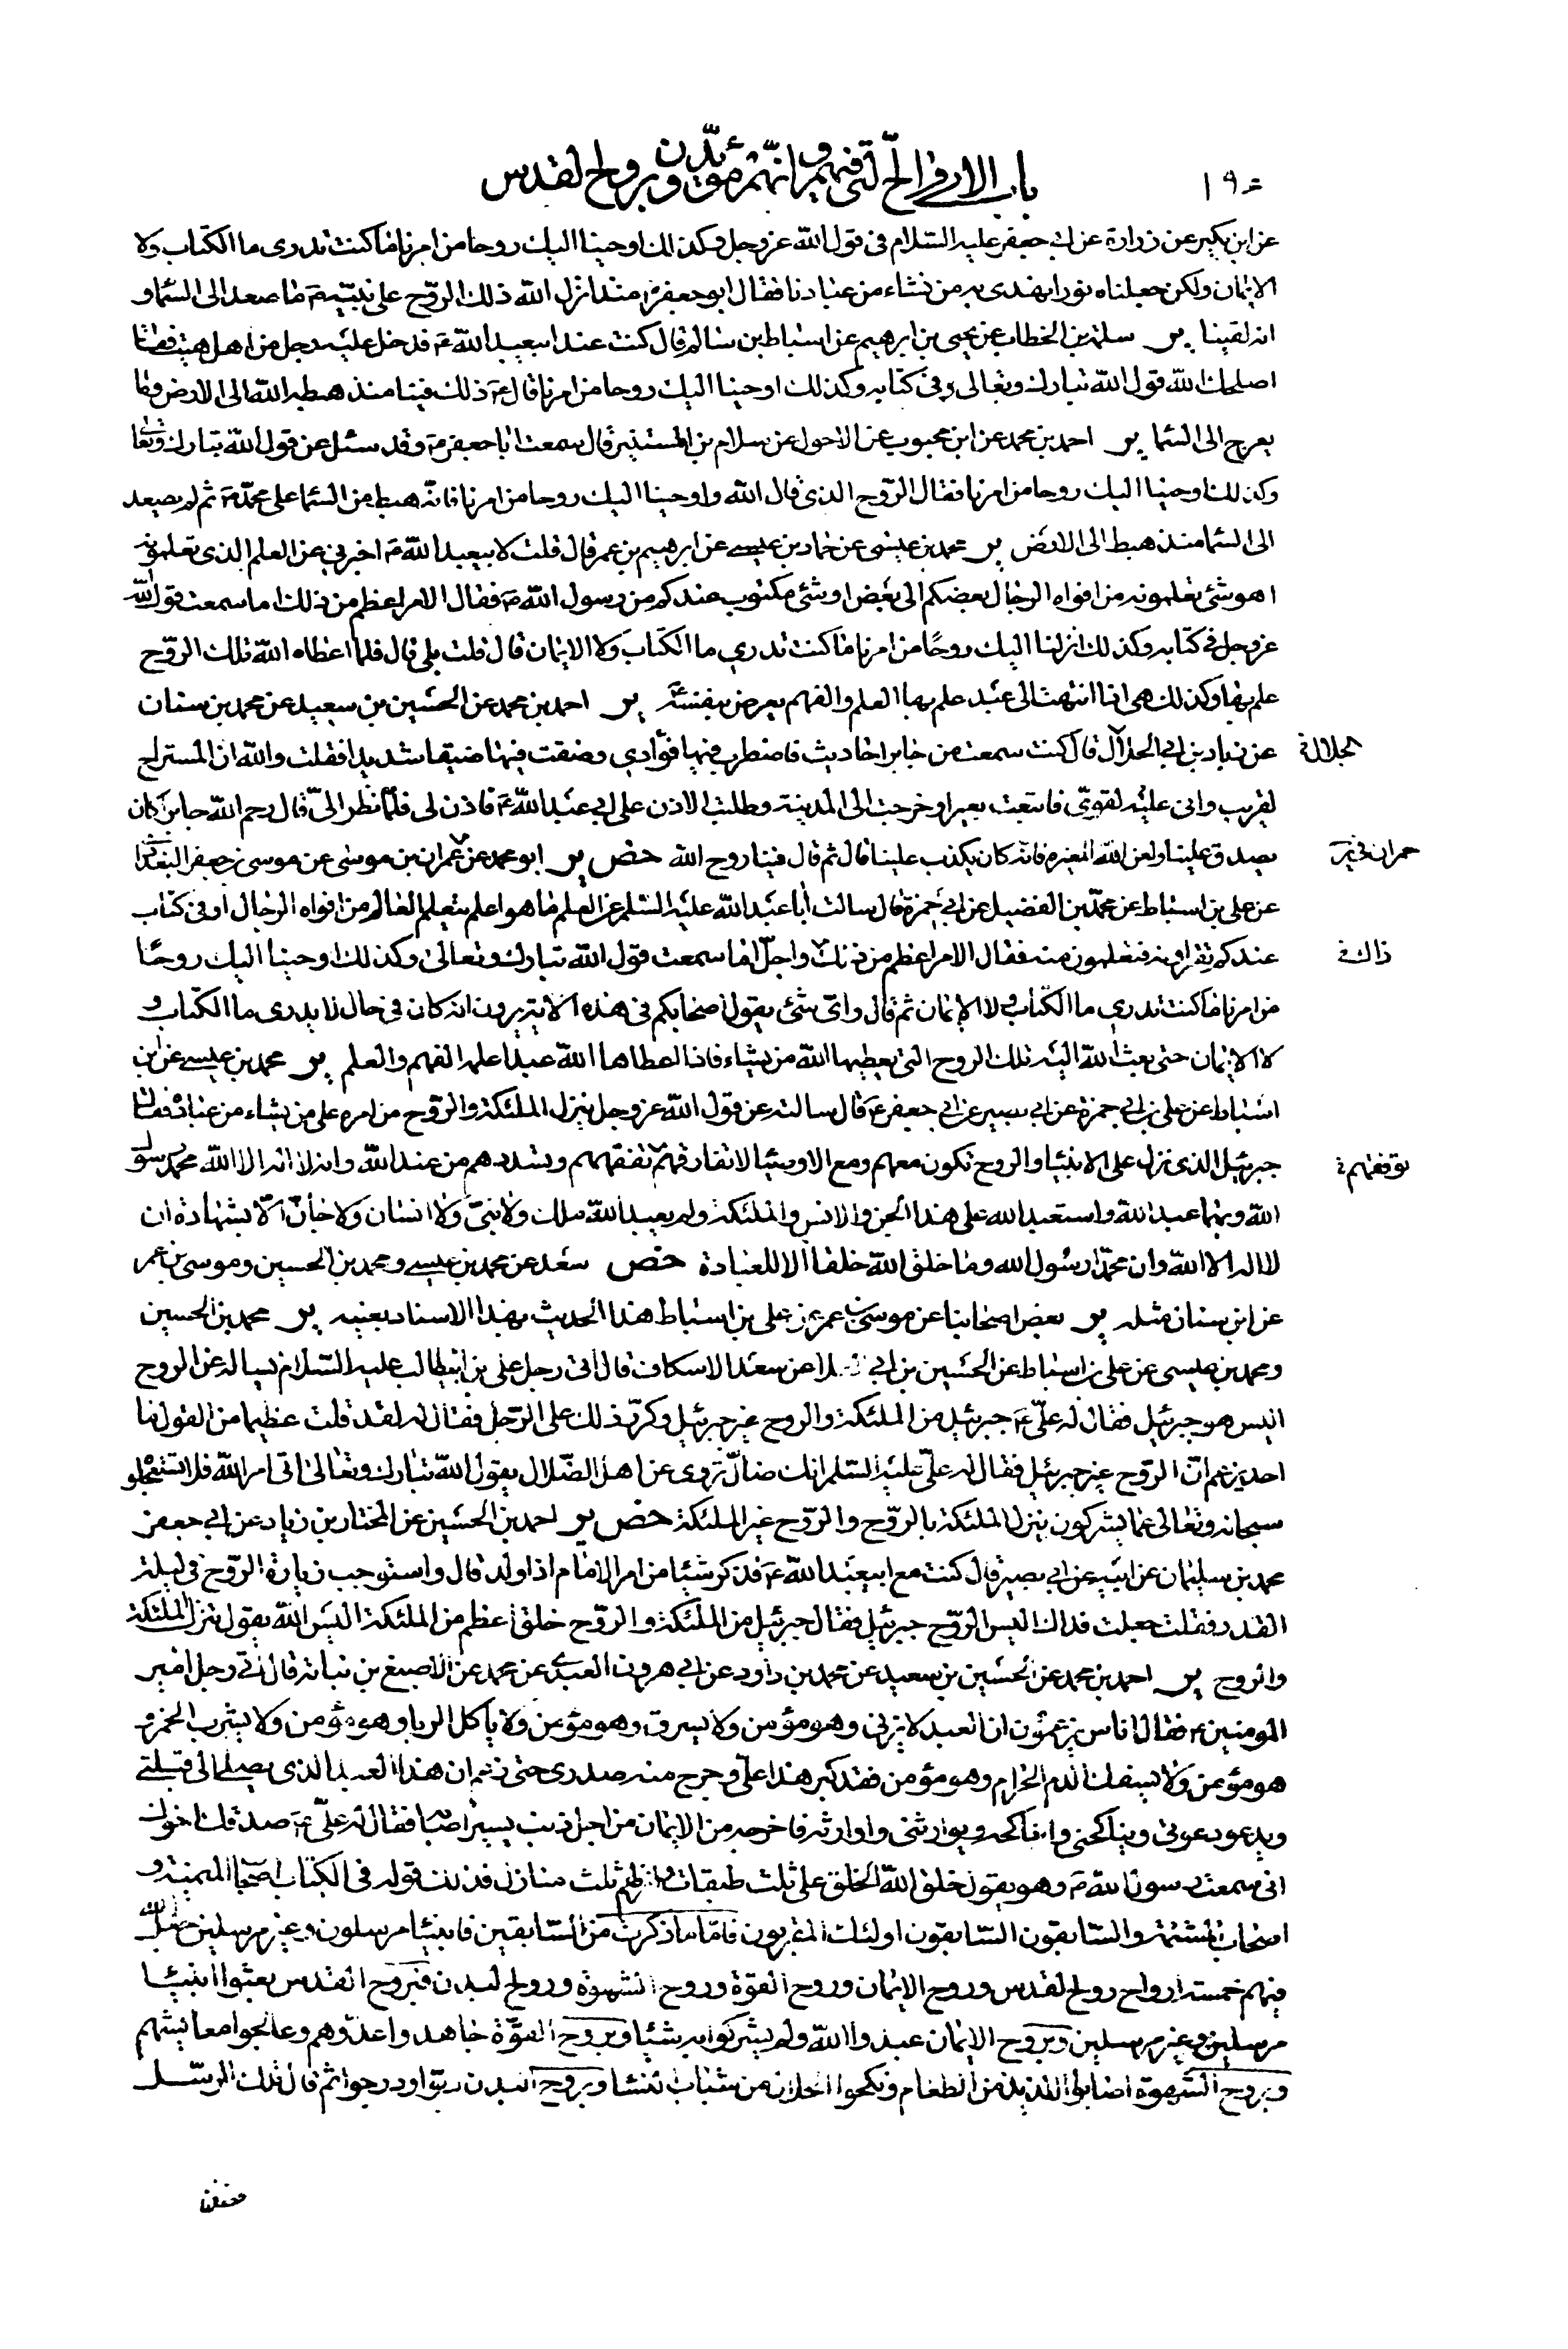 ١٩٠
باب الارواح التی فیهم و انّهم مؤیّدون بروح القدس
عن ابن بکیر عن زرارة عن ابی جعفر علیه السّلام فی قول الله عز وجل وکذلک اوحینا الیک روحا من امرنا ما کنت تدری ما الکتاب ولا
الایمان ولکن جعلناه نورا نهدی به من نشاء من عبادنا فقال ابو جعفر ع منذ انزل الله ذلک الرّوح علی نبیّه ص ما صعد الی السّماء و
انه لفینا یر سلمة بن الخطاب عن یحیی بن ابرهیم عن اسباط بن سالم قال کنت عند ابیعبد الله ع فدخل علیه رجل من اهل هیت فقال
اصلحک الله قول الله تبارک وتعالی فی کتابه وکذلک اوحینا الیک روحا من امرنا قال ع ذلک فینا منذ هبطه الله الی الارض وما
یعرج الی السّماء یر احمد بن محمد عن ابن محبوب عن الاحول عن سلام بن المستنیر قال سمعت ابا جعفر ع وقد سئل عن قول الله تبارک وتعالی
وکذلک اوحینا الیک روحا من امرنا فقال الرّوح الذی قال الله واوحینا الیک روحا من امرنا فانّه هبط من السّماء علی محمّد ص ثم لم یصعد
الی السّماء منذ هبط الی الارض یر محمد بن عیسی عن حماد بن عیسی عن ابرهیم بن عمر قال قلت لابیعبد الله ع اخبرنی عن العلم الذی تعلمونه
اهو شیٔ تعلمونه من افواه الرجال بعضکم الی بعض او شیٔ مکتوب عندکم من رسول الله ص فقال الامر اعظم من ذلک اما سمعت قول الله
عز وجل فی کتابه وکذلک انزلنا الیک روحًا من امرنا ما کنت تدری ما الکتاب ولا الایمان قال قلت بلی قال فلما اعطاه الله تلک الرّوح
علم بها وکذلک هی اذا انتهت الی عبد علم بها العلم والفهم یعرض بنفسه ع یر احمد بن محمد عن الحسین بن سعید عن محمد بن سنان
عن زیاد بن ابی الحلال قال کنت سمعت من جابر احادیث فاضطرب فیها فؤادی وضقت فیها ضیقا شدیدا فقلت والله ان المستراح
الجلال ة
لقریب وانی علیه لقویّ فابتعت بعیرا وخرجت الی المدینة وطلبت الاذن علی ابی عبد الله ع فاذن لی فلمّا نظر الیّ قال رحم الله جابرا کان
یصدق علینا ولعن الله المغیرة فانه کان یکذب علینا قال ثم قال فینا روح الله خص یر ابو محمد عن عمران بن موسی عن موسی بن جعفر البغدادی
حمران خ یر
عن علی بن اسباط عن محمّد بن الفضیل عن ابی حمزة قال سالت ابا عبد الله علیه السّلم عن العلم ما هو اعلم یتعلم العالم من افواه الرجال او فی کتاب
عندکم تقراونه فتعلمون منه فقال الامر اعظم من ذلک واجلّ اما سمعت قول الله تبارک وتعالی وکذلک اوحینا الیک روحًا
ذاک ة
من امرنا ما کنت تدری ما الکتاب ولا الایمان ثم قال وایّ شیٔ یقول اصحابکم فی هذه الایة یرون انه کان فی حال لا یدری ما الکتاب و
لا الایمان حتی بعث الله الیه تلک الروح التی یعطیها الله من یشاء فاذا اعطاها الله عبدا علمه الفهم والعلم یر محمد بن عیسی عن ابن
اسباط عن علی بن ابی حمزة عن ابی بصیر عن ابی جعفر ع قال سالته عن قول الله عز وجل ینزل الملئکة والرّوح من امره علی من یشاء من عباده فقال
جبرئیل الذی نزل علی الانبیاء والروح تکون معهم ومع الاوصیاء لا تفارقهم تفقههم وتسددهم من عند الله وانه لا اله الا الله محمد رسول
توفقهم ة
الله وبهما عبد الله واستعبد الله علی هذا الجن والانس والملئکة ولم یعبد الله ملک ولا نبیّ ولا انسان ولا جانّ الّا بشهادة ان
لا اله الا الله وان محمّدا رسول الله وما خلق الله خلقا الا للعبادة خص سعد عن محمد بن عیسی ومحمد بن الحسین وموسی بن عمر
عن ابن سنان مثله یر بعض اصحابنا عن موسی بن عمر عن علی بن اسباط هذا الحدیث بهذا الاسناد بعینه یر محمد بن الحسین
ومحمد بن عیسی عن علی بن اسباط عن الحسین بن ابی العلا عن سعد الاسکاف قال اتی رجل علی بن ابیطالب علیه السّلام یساله عن الروح
الیس هو جبرئیل فقال له علیّ ع جبرئیل من الملئکة والروح غیر جبرئیل وکرّر ذلک علی الرّجل فقال له لقد قلت عظیما من القول ما
احد یزعم انّ الرّوح غیر جبرئیل فقال له علیّ علیه السّلم انک ضالّ تروی عن اهل الضّلال یقول الله تبارک وتعالی اتی امر الله فلا تستعجلوه
سبحانه وتعالی عما یشرکون ینزل الملئکة بالرّوح والرّوح غیر الملئکة خص یر احمد بن الحسین عن المختار بن زیاد عن ابی جعفر
محمد بن سلیمان عن ابیه عن ابی بصیر قال کنت مع ابیعبد الله ع فذکر شیئا من امر الامام اذا ولد قال واستوجب زیارة الرّوح فی لیلة
القدر فقلت جعلت فداک الیس الرّوح جبرئیل فقال جبرئیل من الملئکة والرّوح خلق اعظم من الملئکة الیس الله یقول تنزل الملئکة
والروح یر احمد بن محمد عن الحسین بن سعید عن محمد بن داود عن ابی هرون العبدی عن محمد عن الاصبغ بن نباتة قال اتی رجل امیر
المومنین ع فقال اناس یزعمون ان العبد لا یزنی وهو مؤمن ولا یسرق وهو مؤمن ولا یاکل الربا وهو مؤمن ولا یشرب الخمر و
هو مؤمن ولا یسفک الدم الحرام وهو مؤمن فقد کبر هذا علیّ وحرج منه صدری حتی زعم ان هذا العبد الذی یصلی الی قبلتی
ویدعو دعوتی ویناکحنی واناکحه ویوارثنی واوارثه فاخرجه من الایمان من اجل ذنب یسیر اصابه فقال له علیّ ع صدقک اخوک
انی سمعت رسول الله ص وهو یقول خلق الله الخلق علی ثلث طبقات وانزلهم ثلث منازل فذلک قوله فی الکتاب اصحاب المیمنة و
اصحاب المشئمة والسّابقون السّابقون اولئک المقربون فامّا ما ذکرت من السّابقین فانبیاء مرسلون وغیر مرسلین جعل الله
فیهم خمسة ارواح روح القدس وروح الایمان وروح القوّة وروح الشهوة وروح البدن فبروح القدس بعثوا انبیاء
مرسلین وغیر مرسلین وبروح الایمان عبدوا الله ولم یشرکوا به شیئا وبروح القوّة جاهدوا عدوّهم وعالجوا معایشهم
وبروح الشهوة اصابوا اللذیذ من الطعام ونکحوا الحلال من شباب النساء وبروح البدن دبّوا ودرجوا ثم قال تلک الرسل